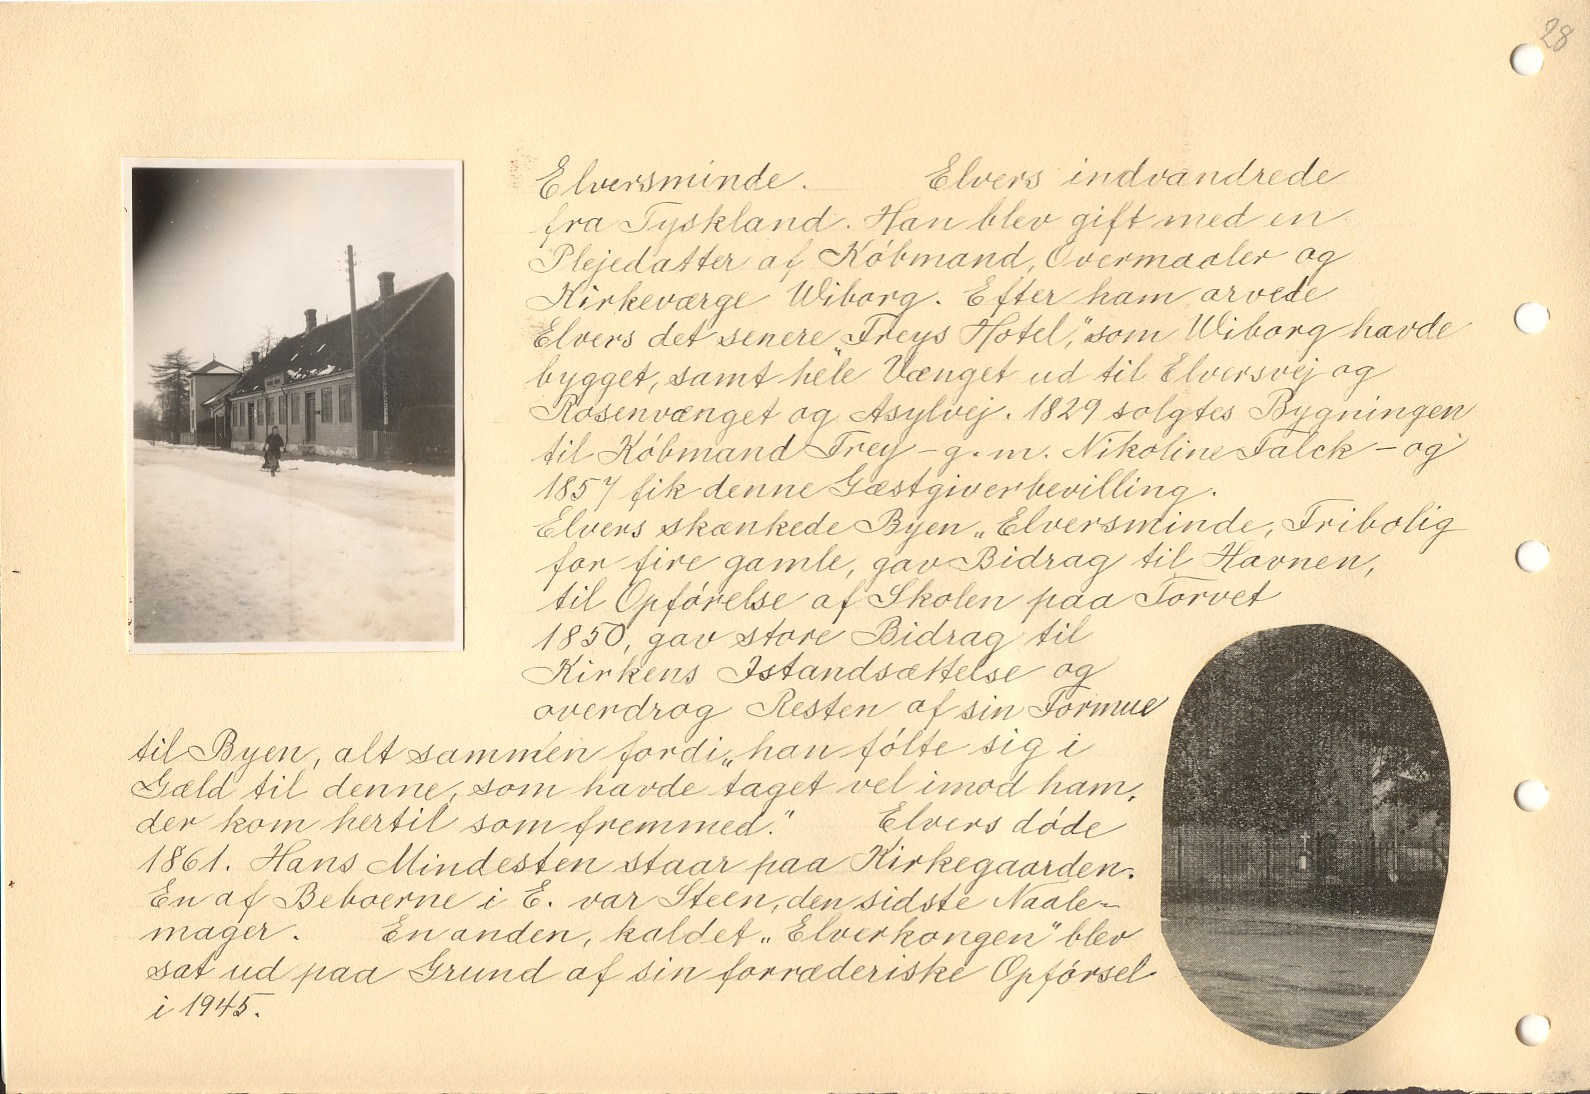 28
Elversminde. Elvers indvandrede
fra Tyskland. Han blev gift med en
Plejedatter af Købmand, Overmaaler og
Kirkeværge Wiborg. Efter ham arvede
Elvers det senere „Freys Hotel," som Wiborg havde
bygget, samt hele Vænget ud til Elversvej og
Rosenvænget og Asylvej. 1829 solgtes Bygningen
til Købmand Frey – g. m. Nikoline Falck – og
1857 fik denne Gæstgiverbevilling.
Elvers skænkede Byen „Elversminde, Fribolig
for fire gamle, gav Bidrag til Havnen,
til Opførelse af Skolen paa Torvet
1850, gav store Bidrag til
Kirkens Istandsættelse og
overdrog Resten af sin Formue
til Byen, alt sammen fordi „han følte sig i
Gæld til denne, som havde taget vel imod ham,
der kom hertil som fremmed." Elvers døde
1861. Hans Mindesten staar paa Kirkegaarden.
En af Beboerne i E. var Steen, den sidste Naale-
mager. En anden, kaldet „Elverkongen" blev
sat ud paa Grund af sin forræderiske Opførsel
i 1945.